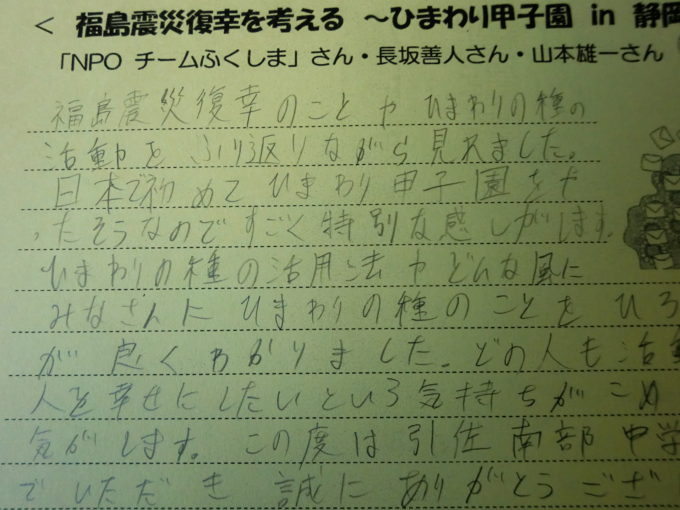 < 福島震災復幸を考える ～ひまわり甲子園 in 静岡
「NPO チームふくしま」さん・長坂善人さん・山本雄一さん
福島震災復幸のことや ひまわりの種の
活動をふり返りながら見れました。
日本で初めてひまわり甲子園をや
ったそうなのですごく特別な感じがします。
ひまわりの種の活用法やどんな風に
みなさんにひまわりの種のことをひろ
が良くわかりました。どの人も活動
人を幸せにしたいという気持ちがこめ
気がします。この度は引佐南部中学
でいただき誠にありがとうござ